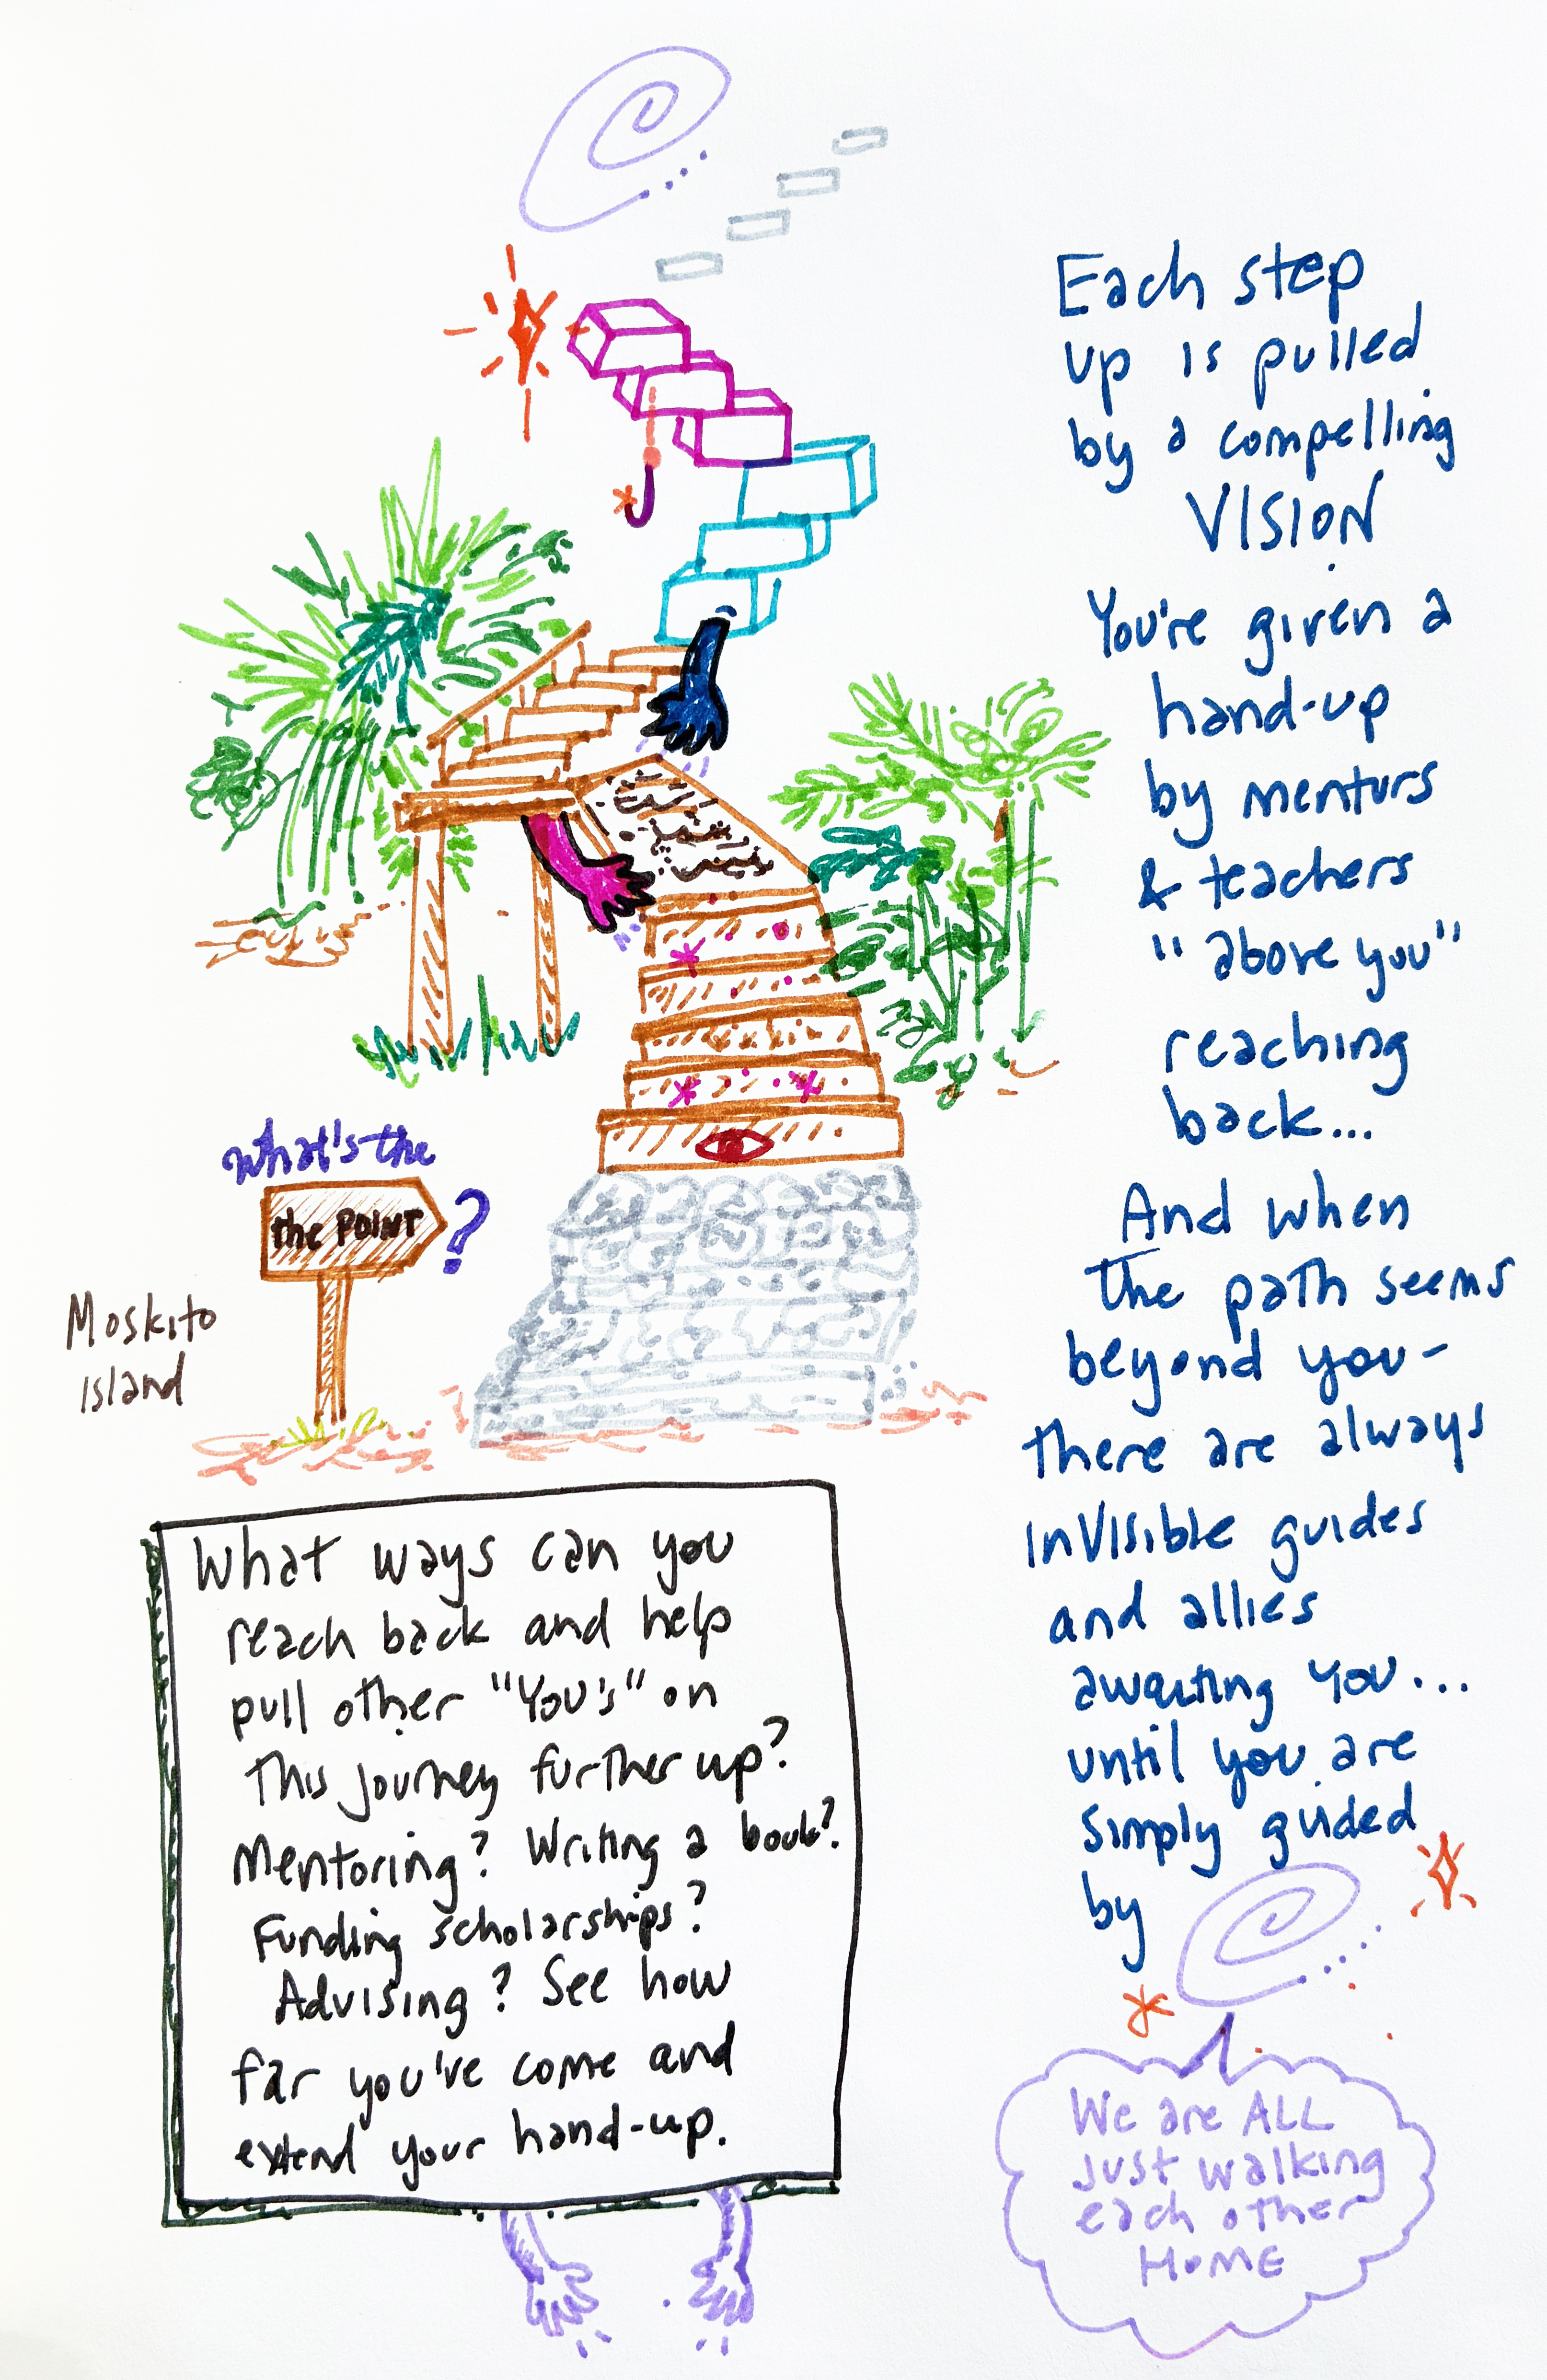 Each step
up is pulled
by a compelling
VISION
You're given a
hand-up
by mentors
& teachers
"above you"
reaching
back...
And when
The path seems
beyond you-
there are always
invisible guides
and allies
awaiting you...
until you are
simply guided
by
What's the
the POINT ?
Moskito
island
What ways can you
reach back and help
pull other "You's" on
This journey further up?
Mentoring? Writing a book?
Funding scholarships?
Advising? See how
far you've come and
extend your hand-up.
We are ALL
Just walking
each other
HOME